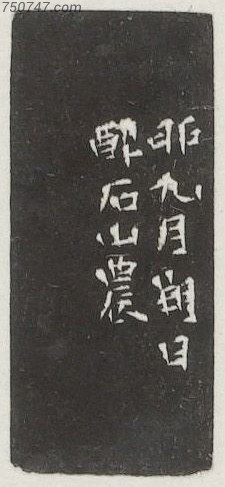 750747.com
卯九月朔日
醉石山農